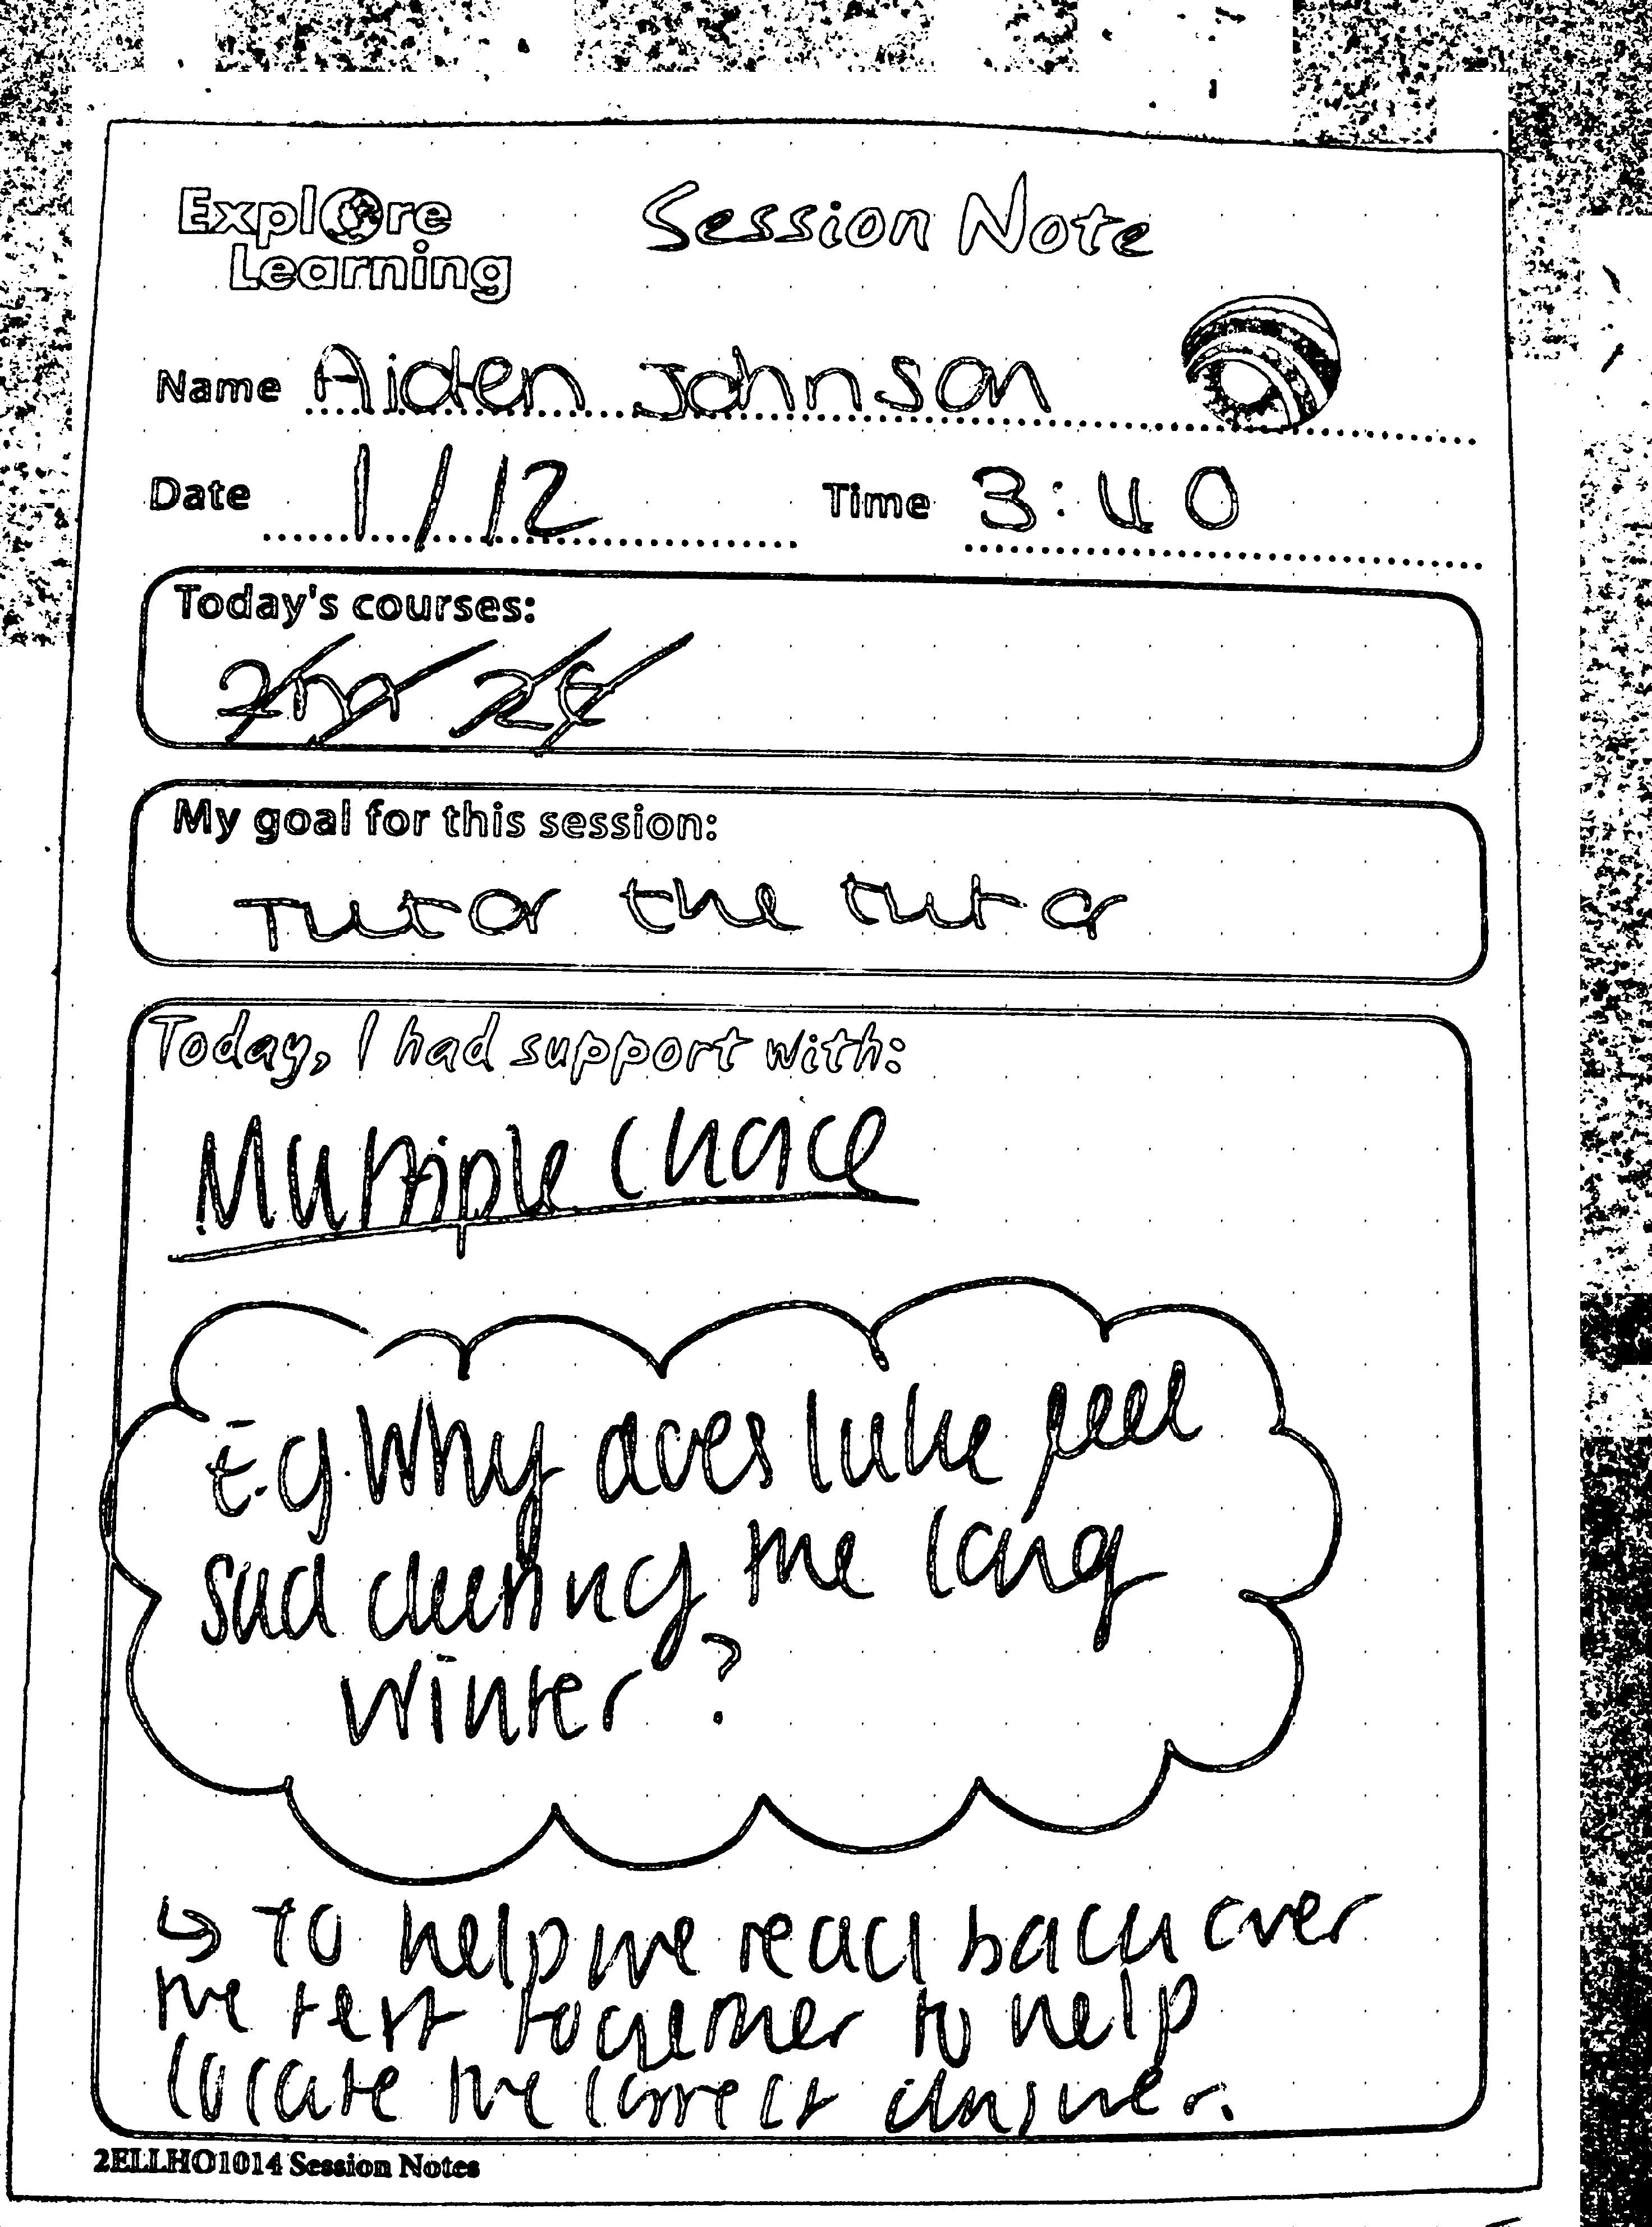 Explore
Learning
Session Note
Name Aiden Johnson
Date 1/12 Time 3:40
Today's courses:
My goal for this session:
Tutor the tutor
Today, I had support with:
Multiple choice
E.g. Why does luke feel
sad during the long
winter?
↳ To help we read back over
the text together to help
locate the correct answer.
2ELLHO1014 Session Notes